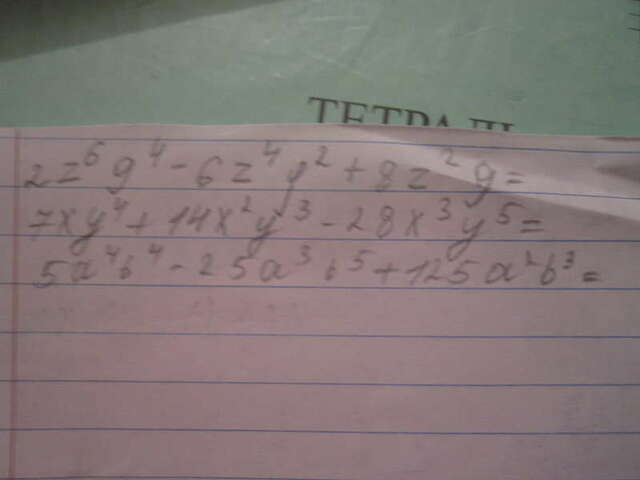 ТЕТРАДЬ
2z⁶y⁴ - 6z⁴y² + 8z²y =
7xy⁴ + 14x²y³ - 28x³y⁵ =
5a⁴b⁴ - 25a³b⁵ + 125a²b³ =